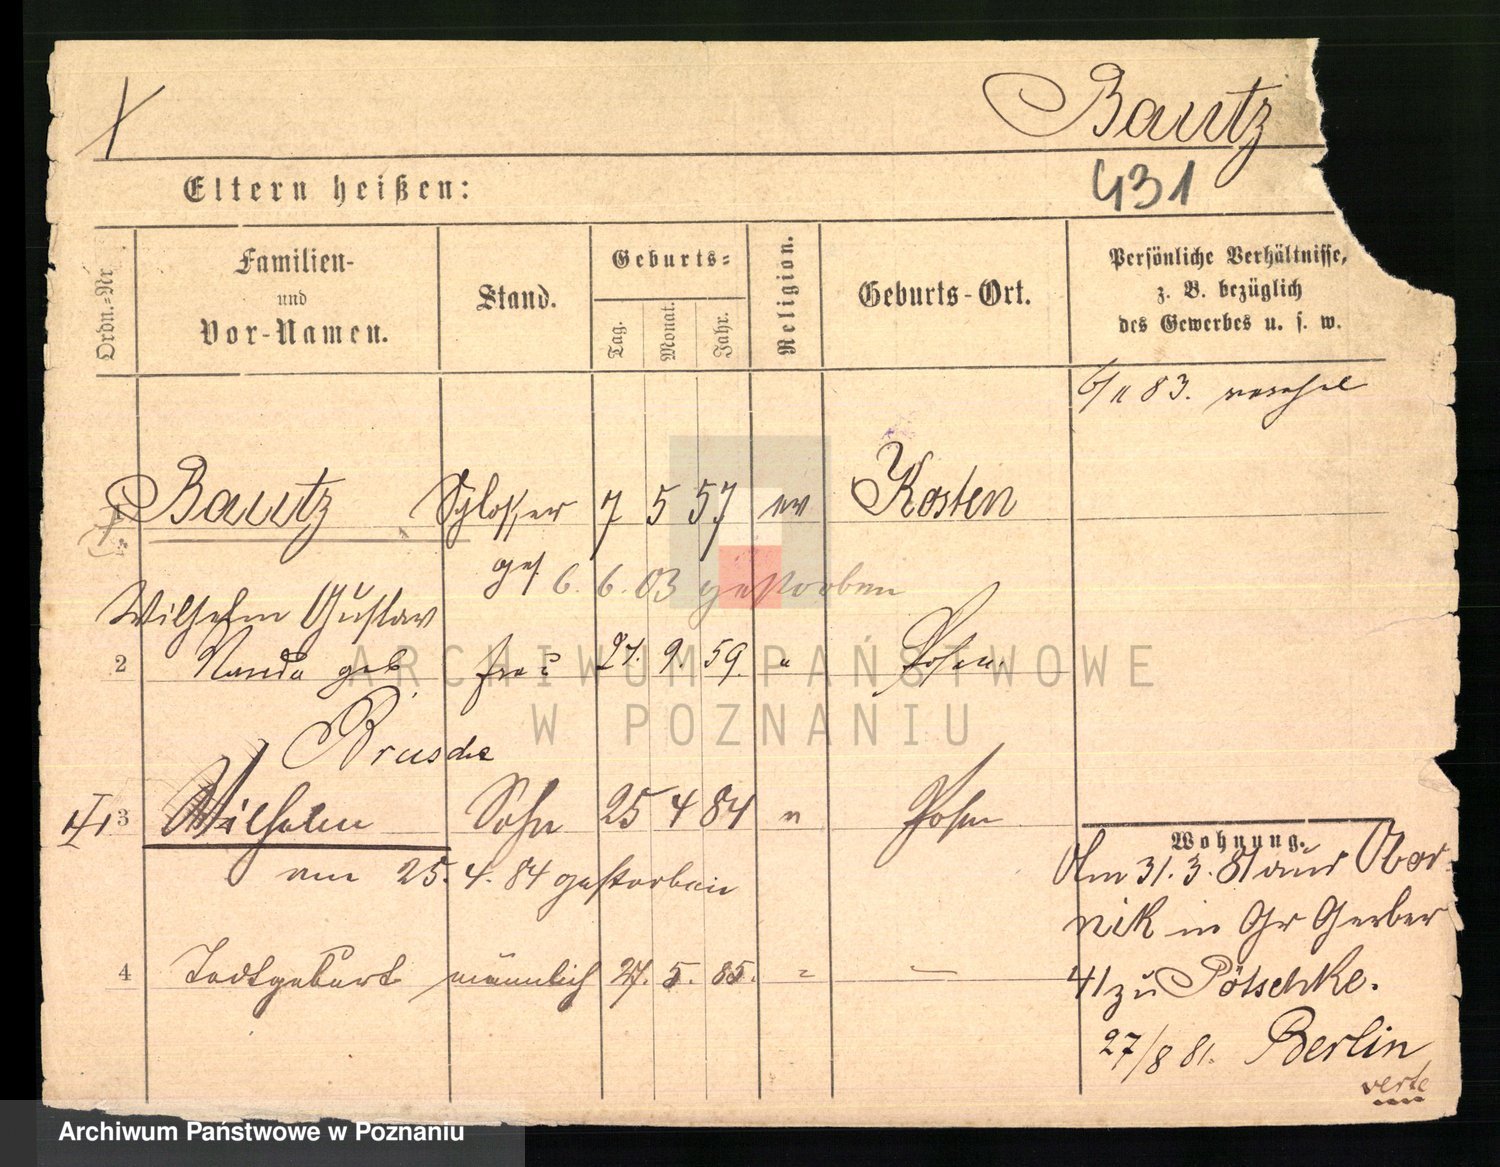 Bautz
431
Eltern heißen:
Ordn.=Nr
Familien-
und
Vor-Namen.
Stand.
Geburts=
Tag.
Monat.
Jahr.
Religion.
Geburts-Ort.
Persönliche Verhältnisse,
z. B. bezüglich
des Gewerbes u. s. w.
6/11 83.
1 Bautz Schlosser 7 5 57 ev Kosten
gest 6. 6. 03 gestorben
Wilhelm Gustav
2 geb frau 27. 9. 59. " Posen.
Bruscke
3 Wilhelm Sohn 25 4 84 " Posen
am 25. 4. 84 gestorben
4 Todtgeburt männlich 27. 5. 85. = —
Wohnung.
Am 31. 3. 81 aus Obor-
nik in Gr Gerber
41 zu Pötschke.
27/8 81. Berlin
verte
ARCHIWUM PAŃSTWOWE
W POZNANIU
Archiwum Państwowe w Poznaniu